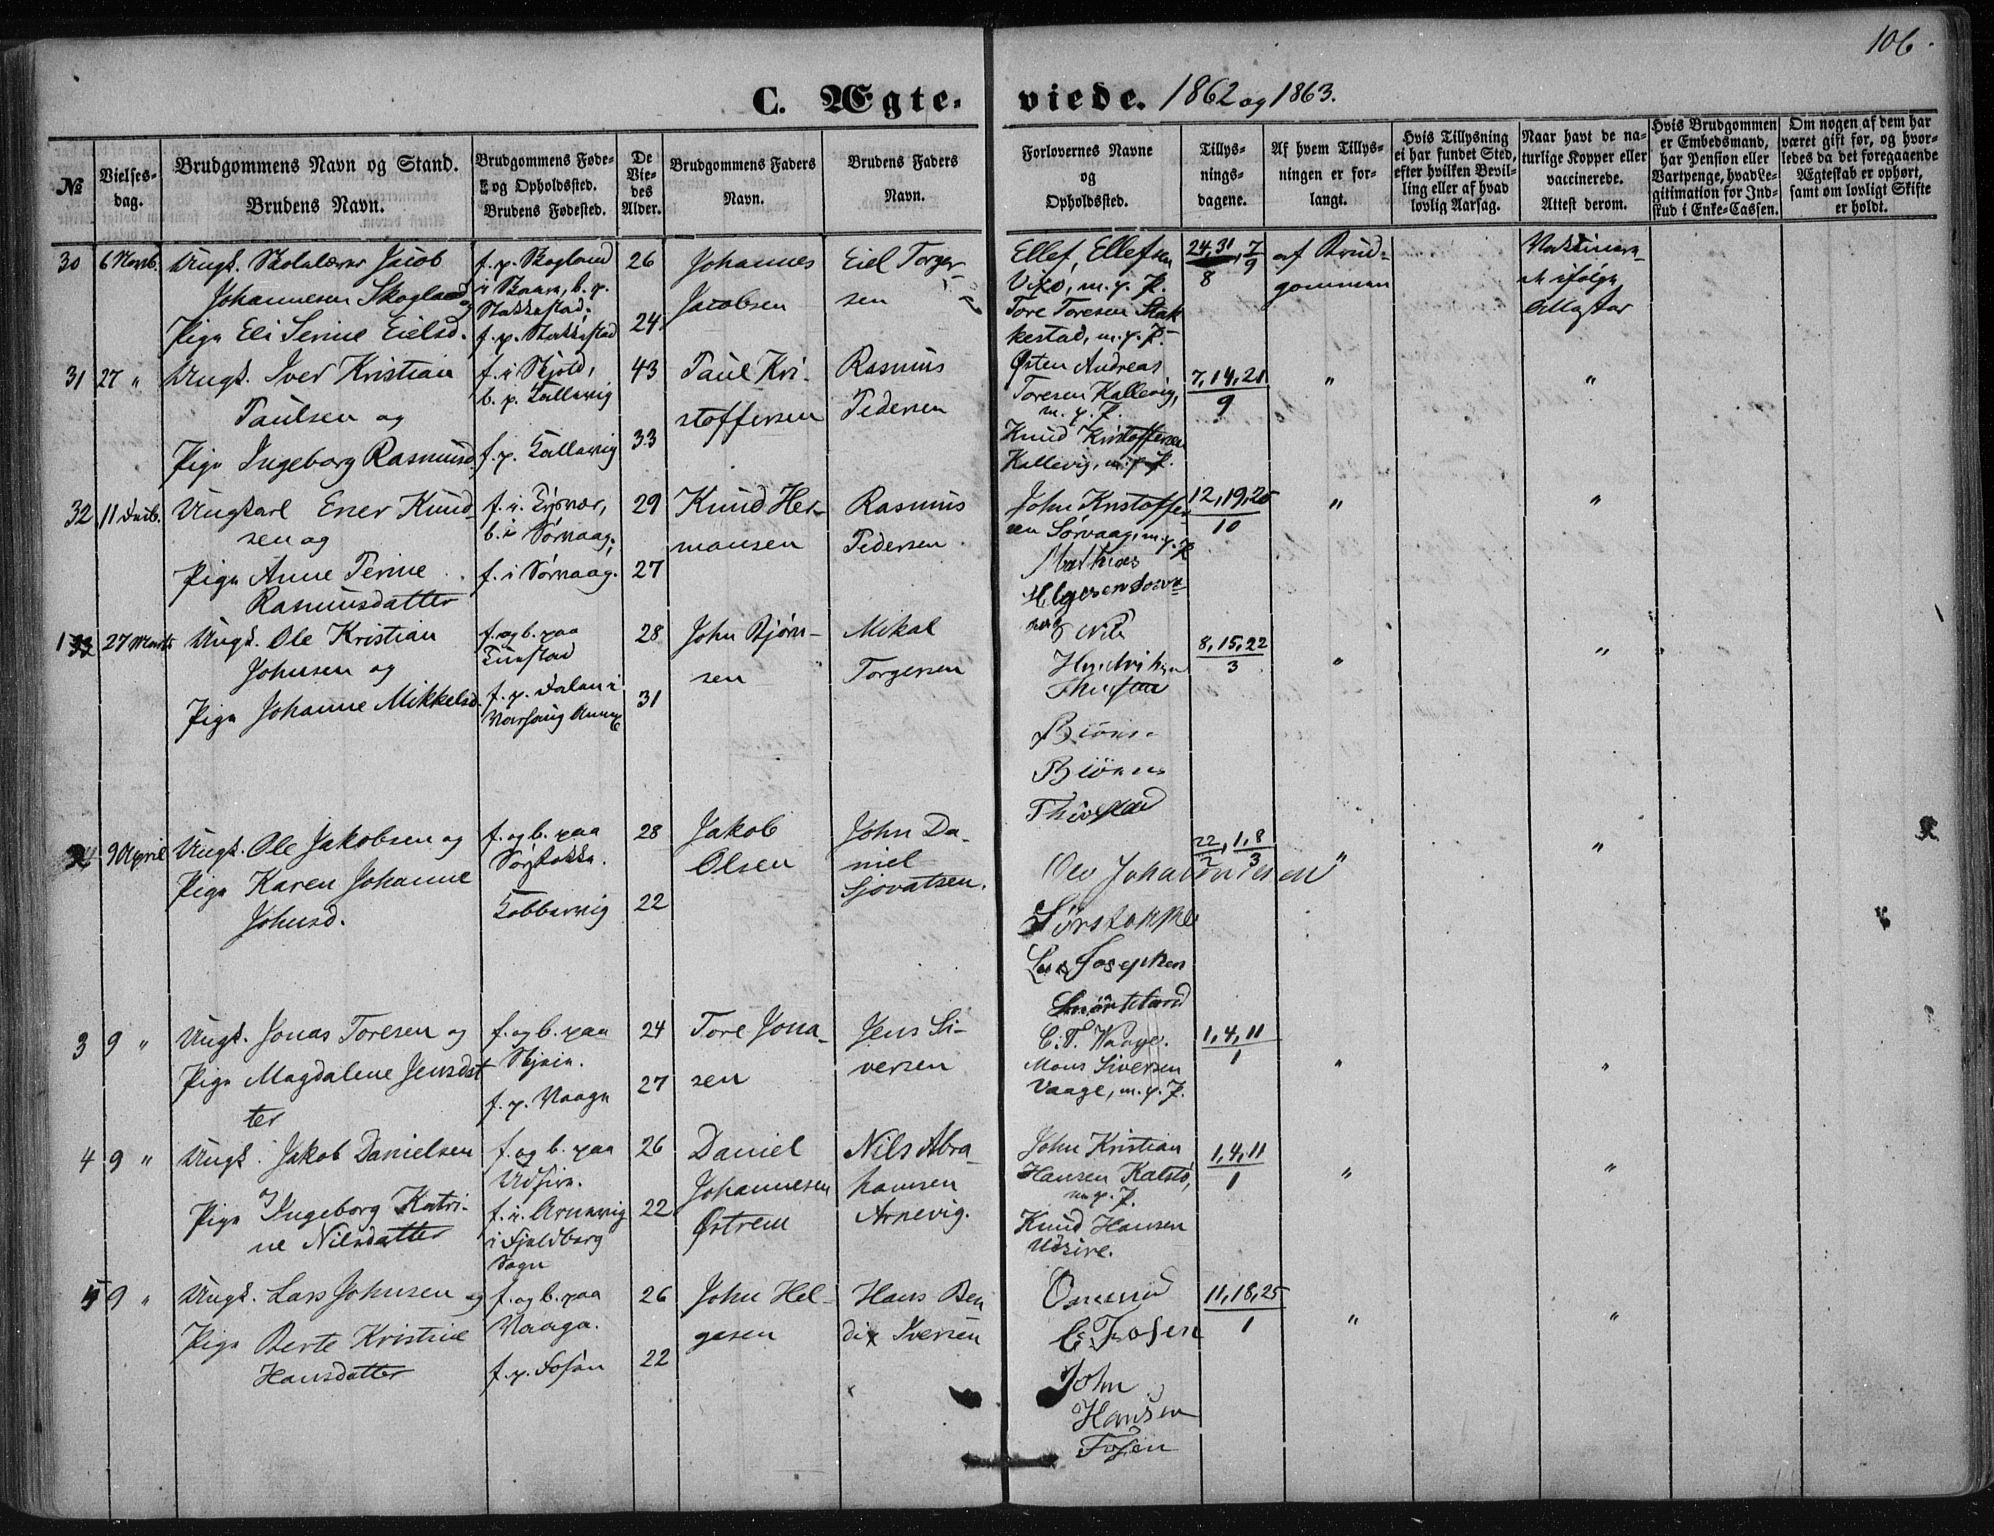 106.
C. Ægteviede. 1862 og 1863.
№
Vielsesdag.
Brudgommens Navn og Stand.
Brudens Navn.
Brudgommens Føde- og Opholdssted.
Brudens Fødested.
De Viedes Alder.
Brudgommens Faders Navn.
Brudens Faders Navn.
Forlovernes Navne og Opholdssted.
Tillysningsdagene.
Af hvem Tillysningen er forlangt.
Hvis Tillysning ei har fundet Sted, efter hvilken Bevilling eller af hvad lovlig Aarsag.
Naar havt de naturlige Kopper eller vaccinerede. Attest derom.
Hvis Brudgommen er Embedsmand, har Pension eller Vartpenge, hvad Legitimation for Indskud i Enke-Cassen.
Om nogen af dem har været gift før, og hvorledes da det foregaaende Ægteskab er ophørt, samt om lovligt Skifte er holdt.
30 6 Novb. Ungk. Skolelærer Jacob
Johannesen Skogland og
Pige Eli Serine Eielsd.
f. p. Skogland
i Skaare, b. p.
Stakkestad.
f. p. Stakkestad
26
24
Johannes
Jacobsen
Eiel Torger-
sen
Ellef Ellefsen
Vixø, m. p. P.
Tore Toresen Stak-
kestad, m. p. P.
24, 31/8, 7/9
af Brud-
gommen
31 27 " Ungk. Iver Kristian
Paulsen og
Pige Ingeborg Rasmusd.
f. i Skjold,
b. p. Kallevig
f. p. Kallevig
43
33
Paul Kri-
stoffersen
Rasmus
Pedersen
Østen Andreas
Toresen Kallevig,
m. p. P.
Knud Kristoffersen
Kallevig, m. p. P.
7, 14, 21
9
"
"
32 11 Decb. Ungkarl Ener Knud-
sen og
Pige Anne Perine
Rasmusdatter
b. i Sørvaag;
f. i Sørvaag.
29
27
Knud Her-
mansen
Rasmus
Pedersen
John Kristoffer-
sen Sørvaag, m. p. P.
Mathias
12, 19, 26
10
"
"
1 27 Marts Ungk. Ole Kristian
Johnsen og
Pige Johanne Mikkelsd.
f. og b. paa
28
31
John Bjørn-
sen
Mikal
Torgersen
Biørn
8, 15, 22
3
"
"
2 9 April Ungk. Ole Jakobsen og
Pige Karen Johanne
Johnsd.
f. og b. paa
Kobbervig
28
22
Jakob
Olsen
John Da-
niel
Sjovatsen.
Lars Josephsen
22/2, 1, 8/3
"
"
3 9 " Ungk. Jonas Toresen og
Pige Magdalene Jensdat
ter
f. og b. paa
f. p. Vaage
24
27
Tore Jona-
sen
Jens Si-
versen
Mons Siversen
Vaage, m. p. P.
1, 4, 11
1
"
"
4 9 " Ungk. Jakob Danielsen
Pige Ingeborg Katri-
ne Nilsdatter
f. og b. paa
Udsire.
f. i Arnevig
i Fjeldberg
Sogn
26
22
Daniel
Johannesen
Østrem
Nils Abra-
hamsen
Arnevig.
John Kristian
Hansen Kalstø,
m. p. P.
Knud Hansen
Udsire.
1, 4, 11
1
"
"
5 9 " Ungk. Lars Johnsen og
Pige Berte Kristine
Hansdatter
f. og b. paa
Vaage.
f. p. Fosen
26
22
John Hel-
gesen
Hans Ben
dix Iversen
Fosen
John
Hansen
Fosen
11, 18, 25
1
"
"